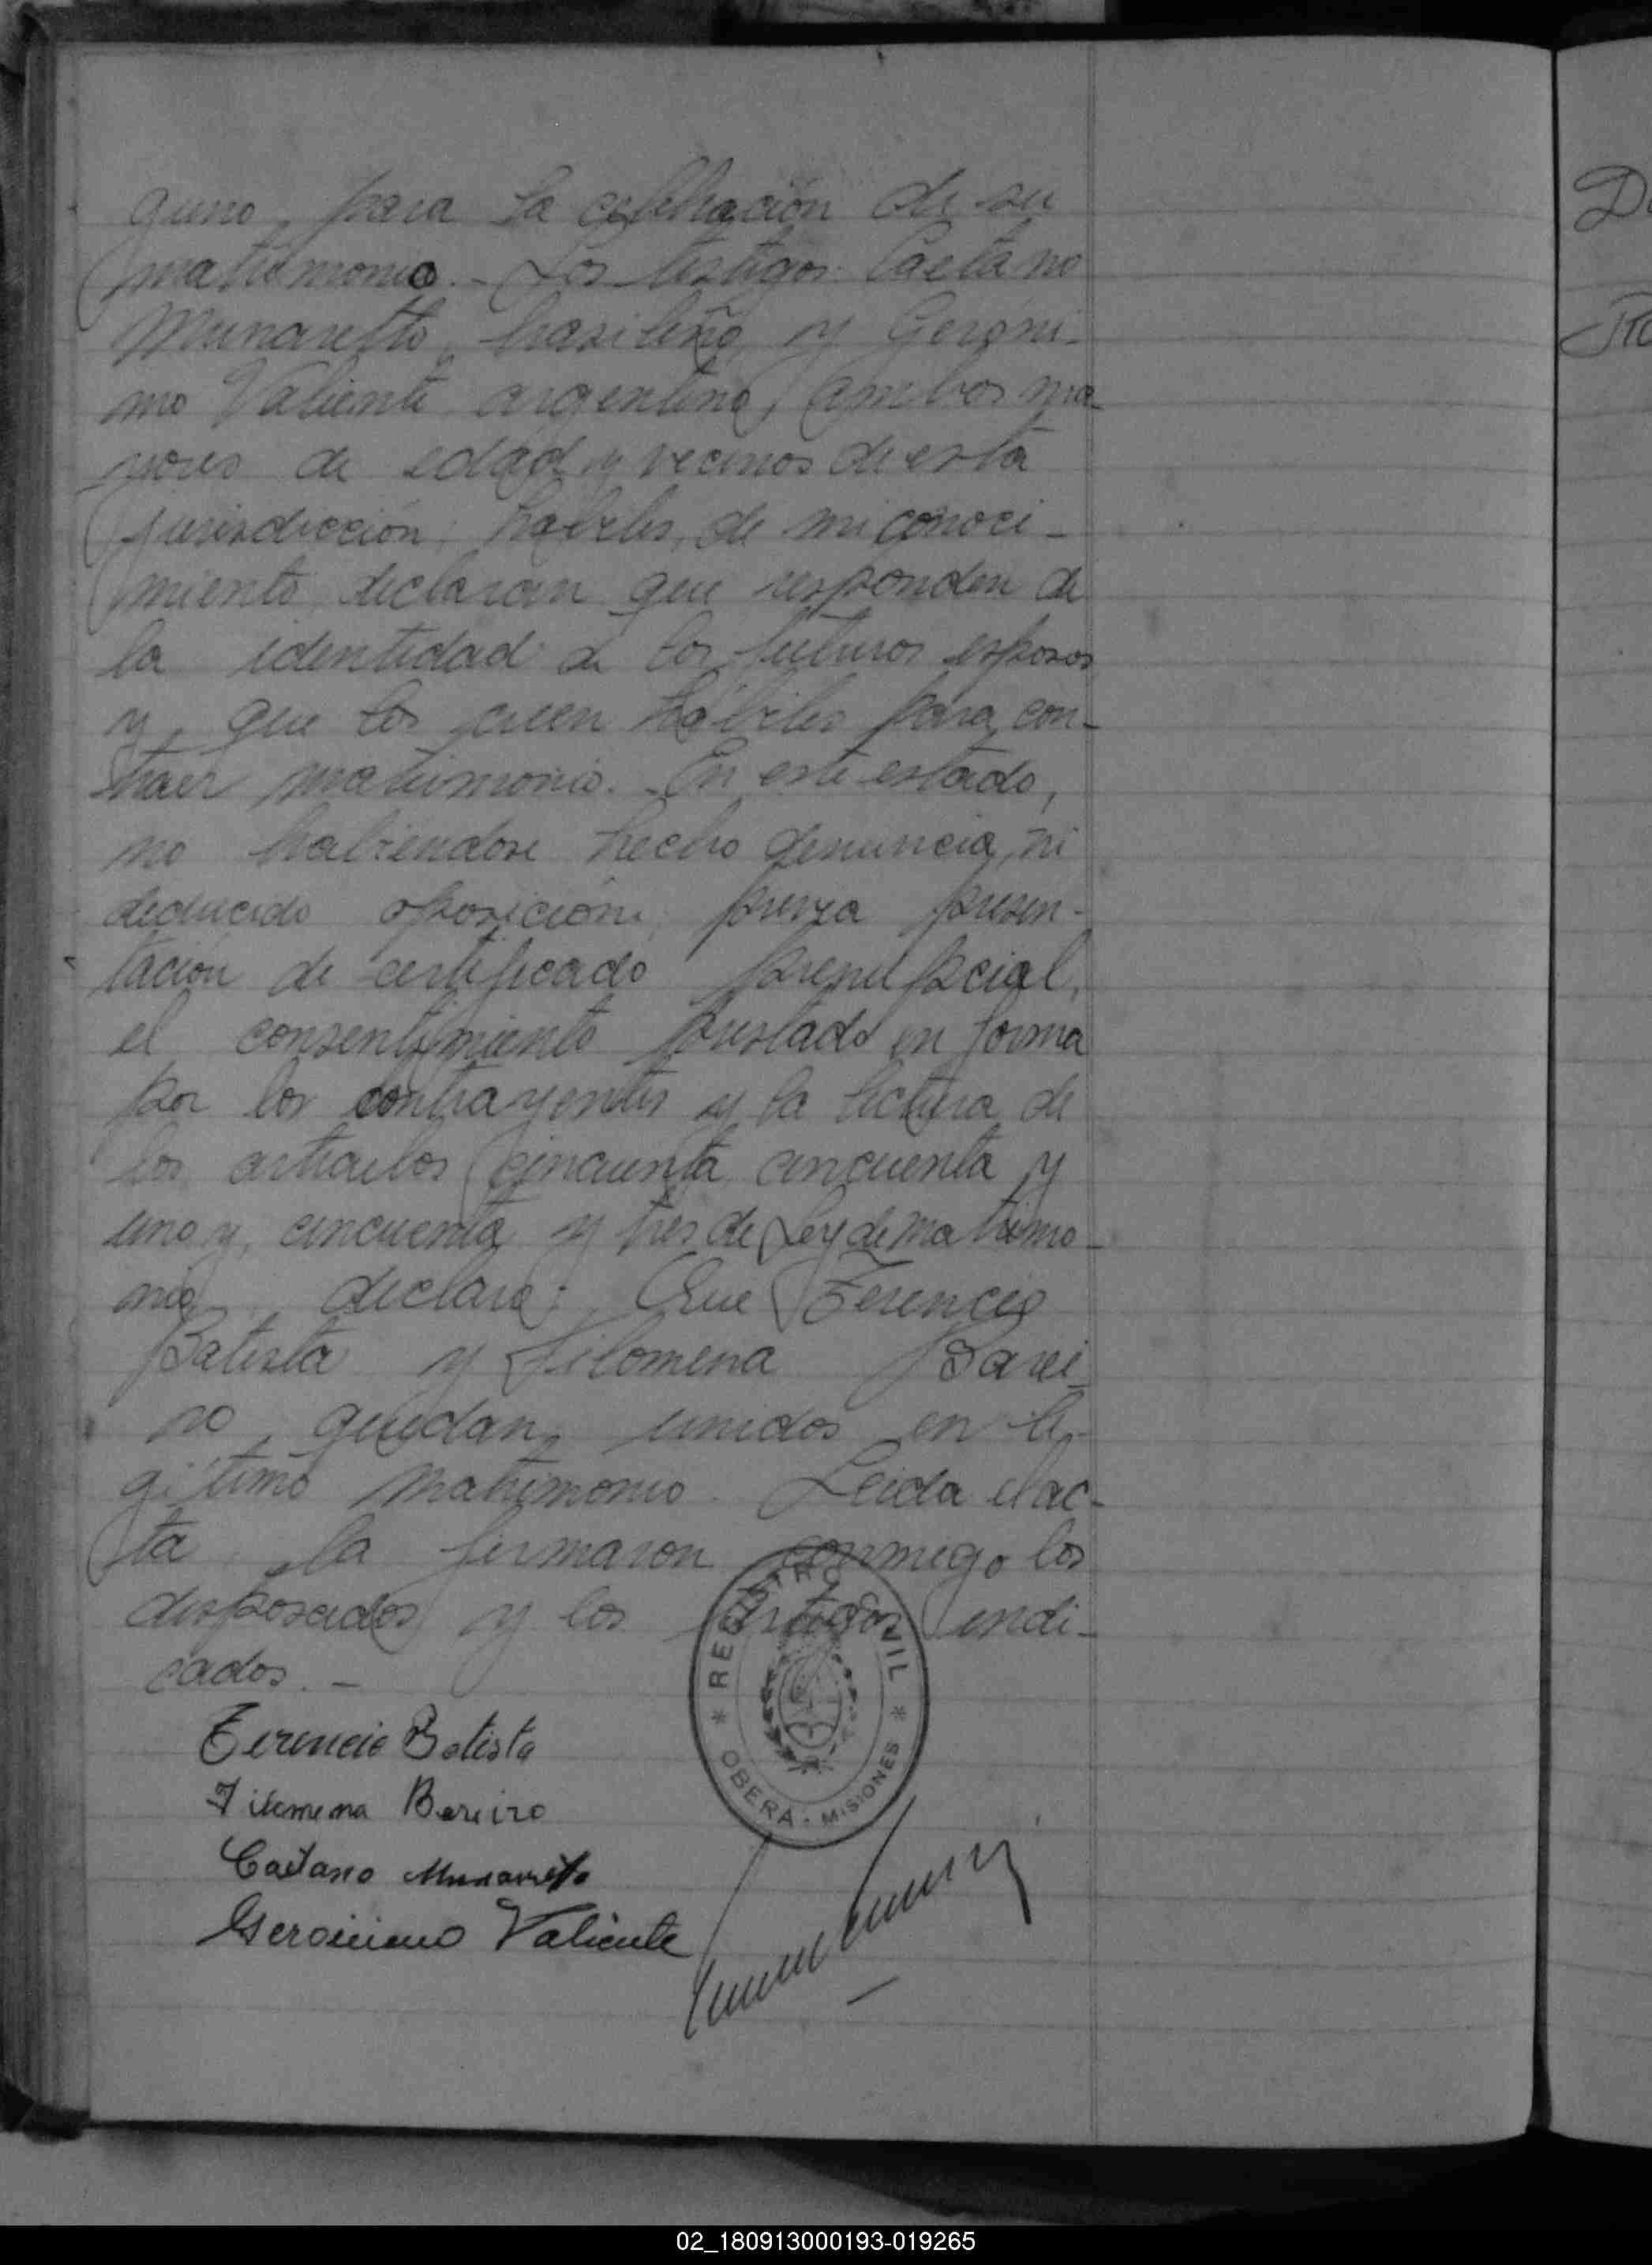 guno, para la celebración de su
matrimonio.- Los testigos Caetano
Munaretto, brasileño, y Geróni-
mo Valiente argentino, ambos ma-
yores de edad y vecinos de esta
jurisdicción, habiles, de mi conoci-
miento, declaran que responden de
la identidad de los futuros esposos
y, que los creen hábiles para con-
traer matrimonio.- En este estado,
no habiendose hecho denuncia, ni
deducido oposición, previa presen-
tación de certificado prenupcial,
el consentimiento prestado en forma
por los contrayentes y la lectura de
los articulos cincuenta cincuenta y
uno y, cincuenta y tres de Ley de matrimo-
nio, declaro; Que Terencio
Batista y Filomena Barei-
ro, quedan unidos en le-
gítimo matrimonio. Leida el ac-
ta, la firmaron conmigo los
desposados y los testigos indi-
cados.-
REGISTRO CIVIL
* OBERA - MISIONES *
Terencio Batista
Filomena Bareiro
Caetano Munaretto
Geronimo Valiente
D
02_180913000193-019265